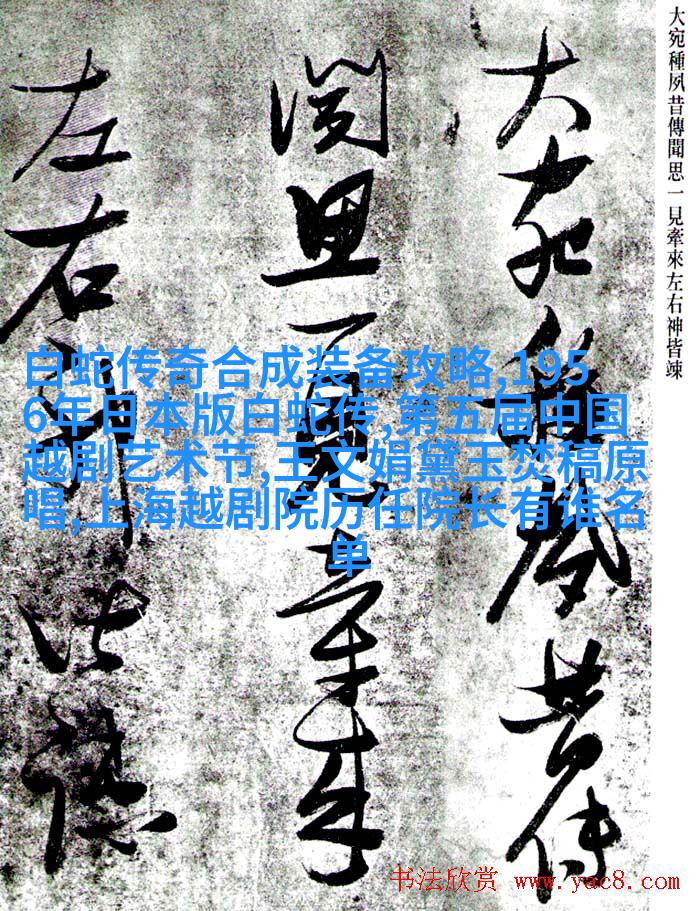 大宛種夙昔傳聞思一見牽來左右神皆竦
大宛種夙昔傳
聞思一見牽來
左右神皆竦
白蛇传奇合成装备攻略,195
6年日本版白蛇传,第五届中国
越剧艺术节,王文娟黛玉焚稿原
唱,上海越剧院历任院长有谁名
单
书法欣赏 www.yac8.com